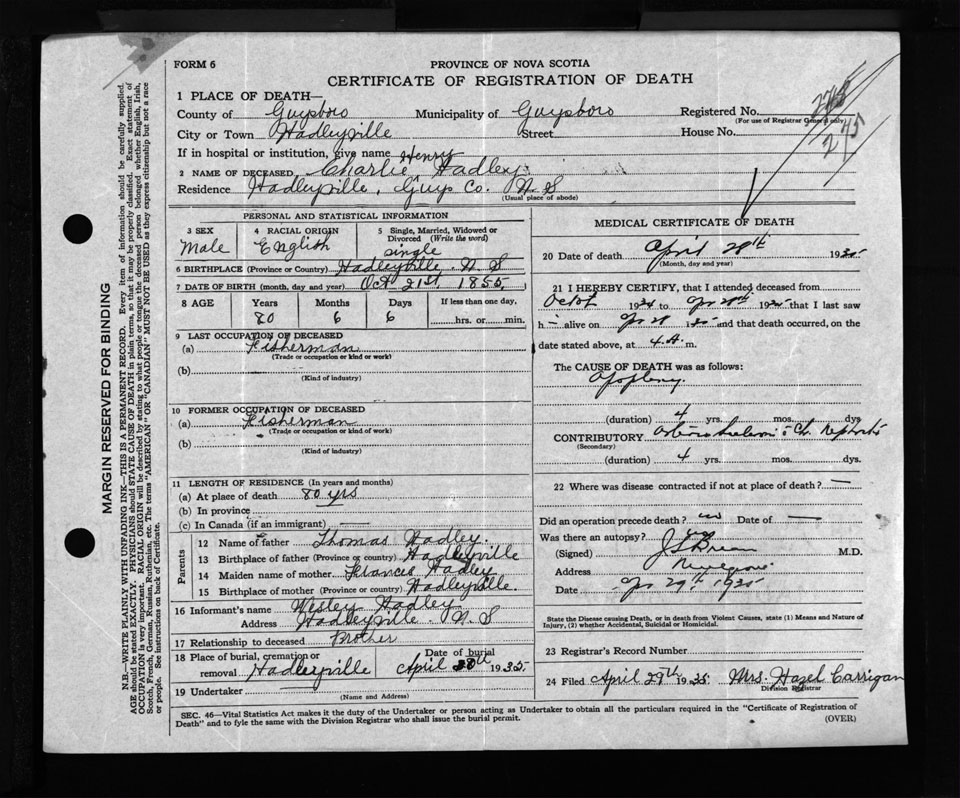 FORM 6
PROVINCE OF NOVA SCOTIA
CERTIFICATE OF REGISTRATION OF DEATH
1 PLACE OF DEATH—
County of Guysboro Municipality of Guysboro Registered No.
(For use of Registrar General only)
275
City or Town Hadleyville Street House No.
If in hospital or institution, give name
2 NAME OF DECEASED, Charlie Henry Hadley
Residence Hadleyville, Guys Co. N S
(Usual place of abode)
MARGIN RESERVED FOR BINDING
N.B.—WRITE PLAINLY WITH UNFADING INK—THIS IS A PERMANENT RECORD. Every item of information should be carefully supplied.
AGE should be stated EXACTLY. PHYSICIANS should STATE CAUSE OF DEATH in plain terms, so that it may be properly classified. Exact statement of
OCCUPATION is very important. RACIAL ORIGIN will be described by stating to what people or tongue the deceased person belonged whether English, Irish,
Scotch, French, German, Russian, Ruthenian, etc. The terms "AMERICAN" OR "CANADIAN" MUST NOT BE USED as they express citizenship but not a race
of people. See instructions on back of Certificate.
PERSONAL AND STATISTICAL INFORMATION
3 SEX Male
4 RACIAL ORIGIN English
5 Single, Married, Widowed or Divorced (Write the word) single
6 BIRTHPLACE (Province or Country) Hadleyville N. S
7 DATE OF BIRTH (month, day and year) Oct 21st, 1855
8 AGE Years Months Days If less than one day,
80 6 6 hrs. or min.
9 LAST OCCUPATION OF DECEASED
(a) Fisherman
(Trade or occupation or kind of work)
(b)
(Kind of industry)
10 FORMER OCCUPATION OF DECEASED
(a) Fisherman
(Trade or occupation or kind of work)
(b)
(Kind of industry)
11 LENGTH OF RESIDENCE (In years and months)
(a) At place of death 80 yrs
(b) In province
(c) In Canada (if an immigrant) —
Parents
12 Name of father Thomas Hadley
13 Birthplace of father (Province or country) Hadleyville
14 Maiden name of mother Frances Hadley
15 Birthplace of mother (Province or country) Hadleyville
16 Informant's name Wesley Hadley
Address Hadleyville N. S
17 Relationship to deceased Brother
18 Place of burial, cremation or removal Hadleyville Date of burial April 30th 1935
19 Undertaker
(Name and Address)
MEDICAL CERTIFICATE OF DEATH
20 Date of death April 28th 1935
(Month, day and year)
21 I HEREBY CERTIFY, that I attended deceased from
Octob 1934 to Apr 28th 1935 that I last saw
h — alive on Apr 28 1935 and that death occurred, on the
date stated above, at 4 A. m.
The CAUSE OF DEATH was as follows:
Apoplexy
(duration) 4 yrs. mos. dys
CONTRIBUTORY Arterio Sclerosis Ch. Nephritis
(Secondary)
(duration) 4 yrs. mos. dys.
22 Where was disease contracted if not at place of death? —
Did an operation precede death? no Date of —
Was there an autopsy?
(Signed) M.D.
Address
Date Apr 29th 1935
State the Disease causing Death, or in death from Violent Causes, state (1) Means and Nature of
Injury, (2) whether Accidental, Suicidal or Homicidal.
23 Registrar's Record Number
24 Filed April 29th 1935 Mrs. Hazel Carrigan
Division Registrar
SEC. 46—Vital Statistics Act makes it the duty of the Undertaker or person acting as Undertaker to obtain all the particulars required in the "Certificate of Registration of
Death" and to fyle the same with the Division Registrar who shall issue the burial permit.
(OVER)